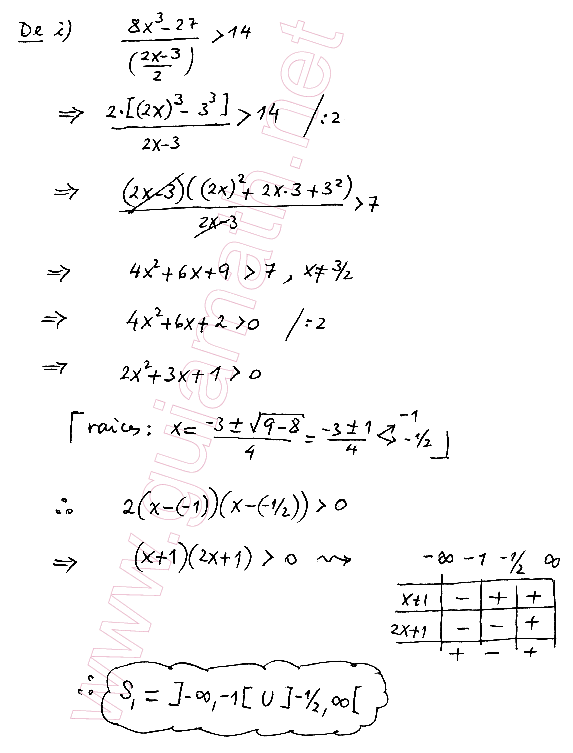 De i) (8x³-27)/((2x-3)/2) > 14
⇒ 2·[(2x)³-3³]/(2x-3) > 14 /:2
⇒ (2x-3)((2x)²+2x·3+3²)/(2x-3) > 7
⇒ 4x²+6x+9 > 7, x≠3/2
⇒ 4x²+6x+2 > 0 /:2
⇒ 2x²+3x+1 > 0
⌈raices: x = (-3±√(9-8))/4 = (-3±1)/4 < -1, -1/2⌋
∴ 2(x-(-1))(x-(-1/2)) > 0
⇒ (x+1)(2x+1) > 0 ⇝
-∞ -1 -1/2 ∞
x+1 - + +
2x+1 - - +
+ - +
∴ S₁ = ]-∞,-1[ ∪ ]-1/2,∞[
www.guiamath.net